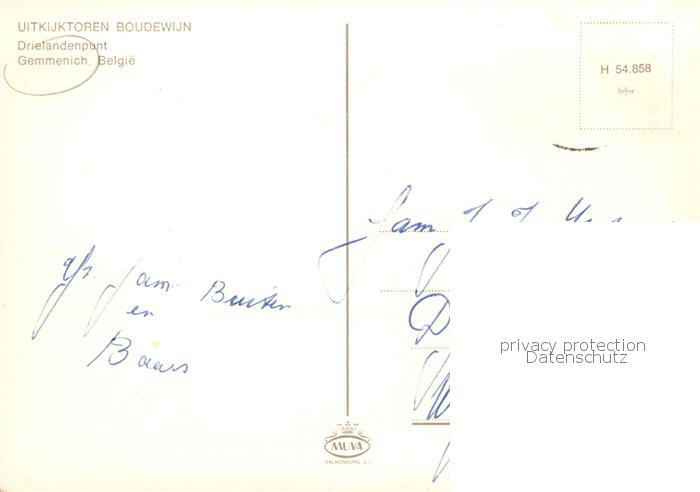 UITKIJKTOREN BOUDEWIJN
Drielandenpunt
Gemmenich. België
H 54.858
Fam
fam. Buiten
en
Baars
D
privacy protection
Datenschutz
MUVA
VALKENBURG